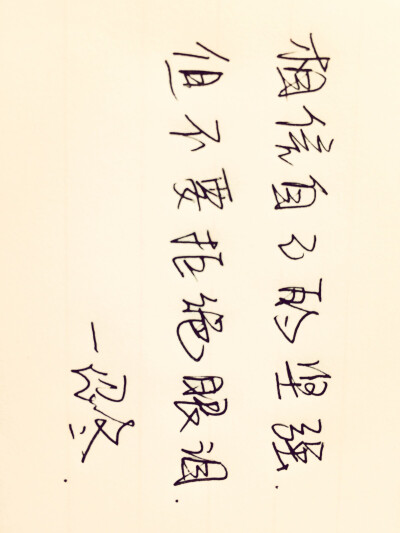 相信自己的坚强.
但不要拒绝眼泪.